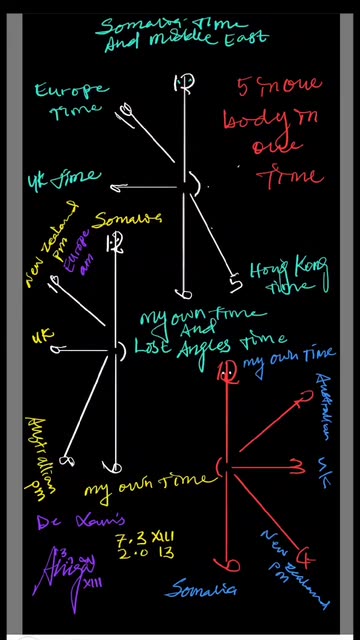 Somalia Time
And Middle East
12
Europe
Time
10
5 in one
body in
one
Time
UK time
9
Hong Kong
Time
5
6
Somalia
New Zealand
pm
Europe
am
12
10
UK
9
Australian
pm
6
my own Time
And
Lost Angles Time
my own Time
12
my own Time
Australian
UK
3
New Zealand
pm
4
6
Somalia
De Xaris
7.3 XIII
2.0 13
13
XIII